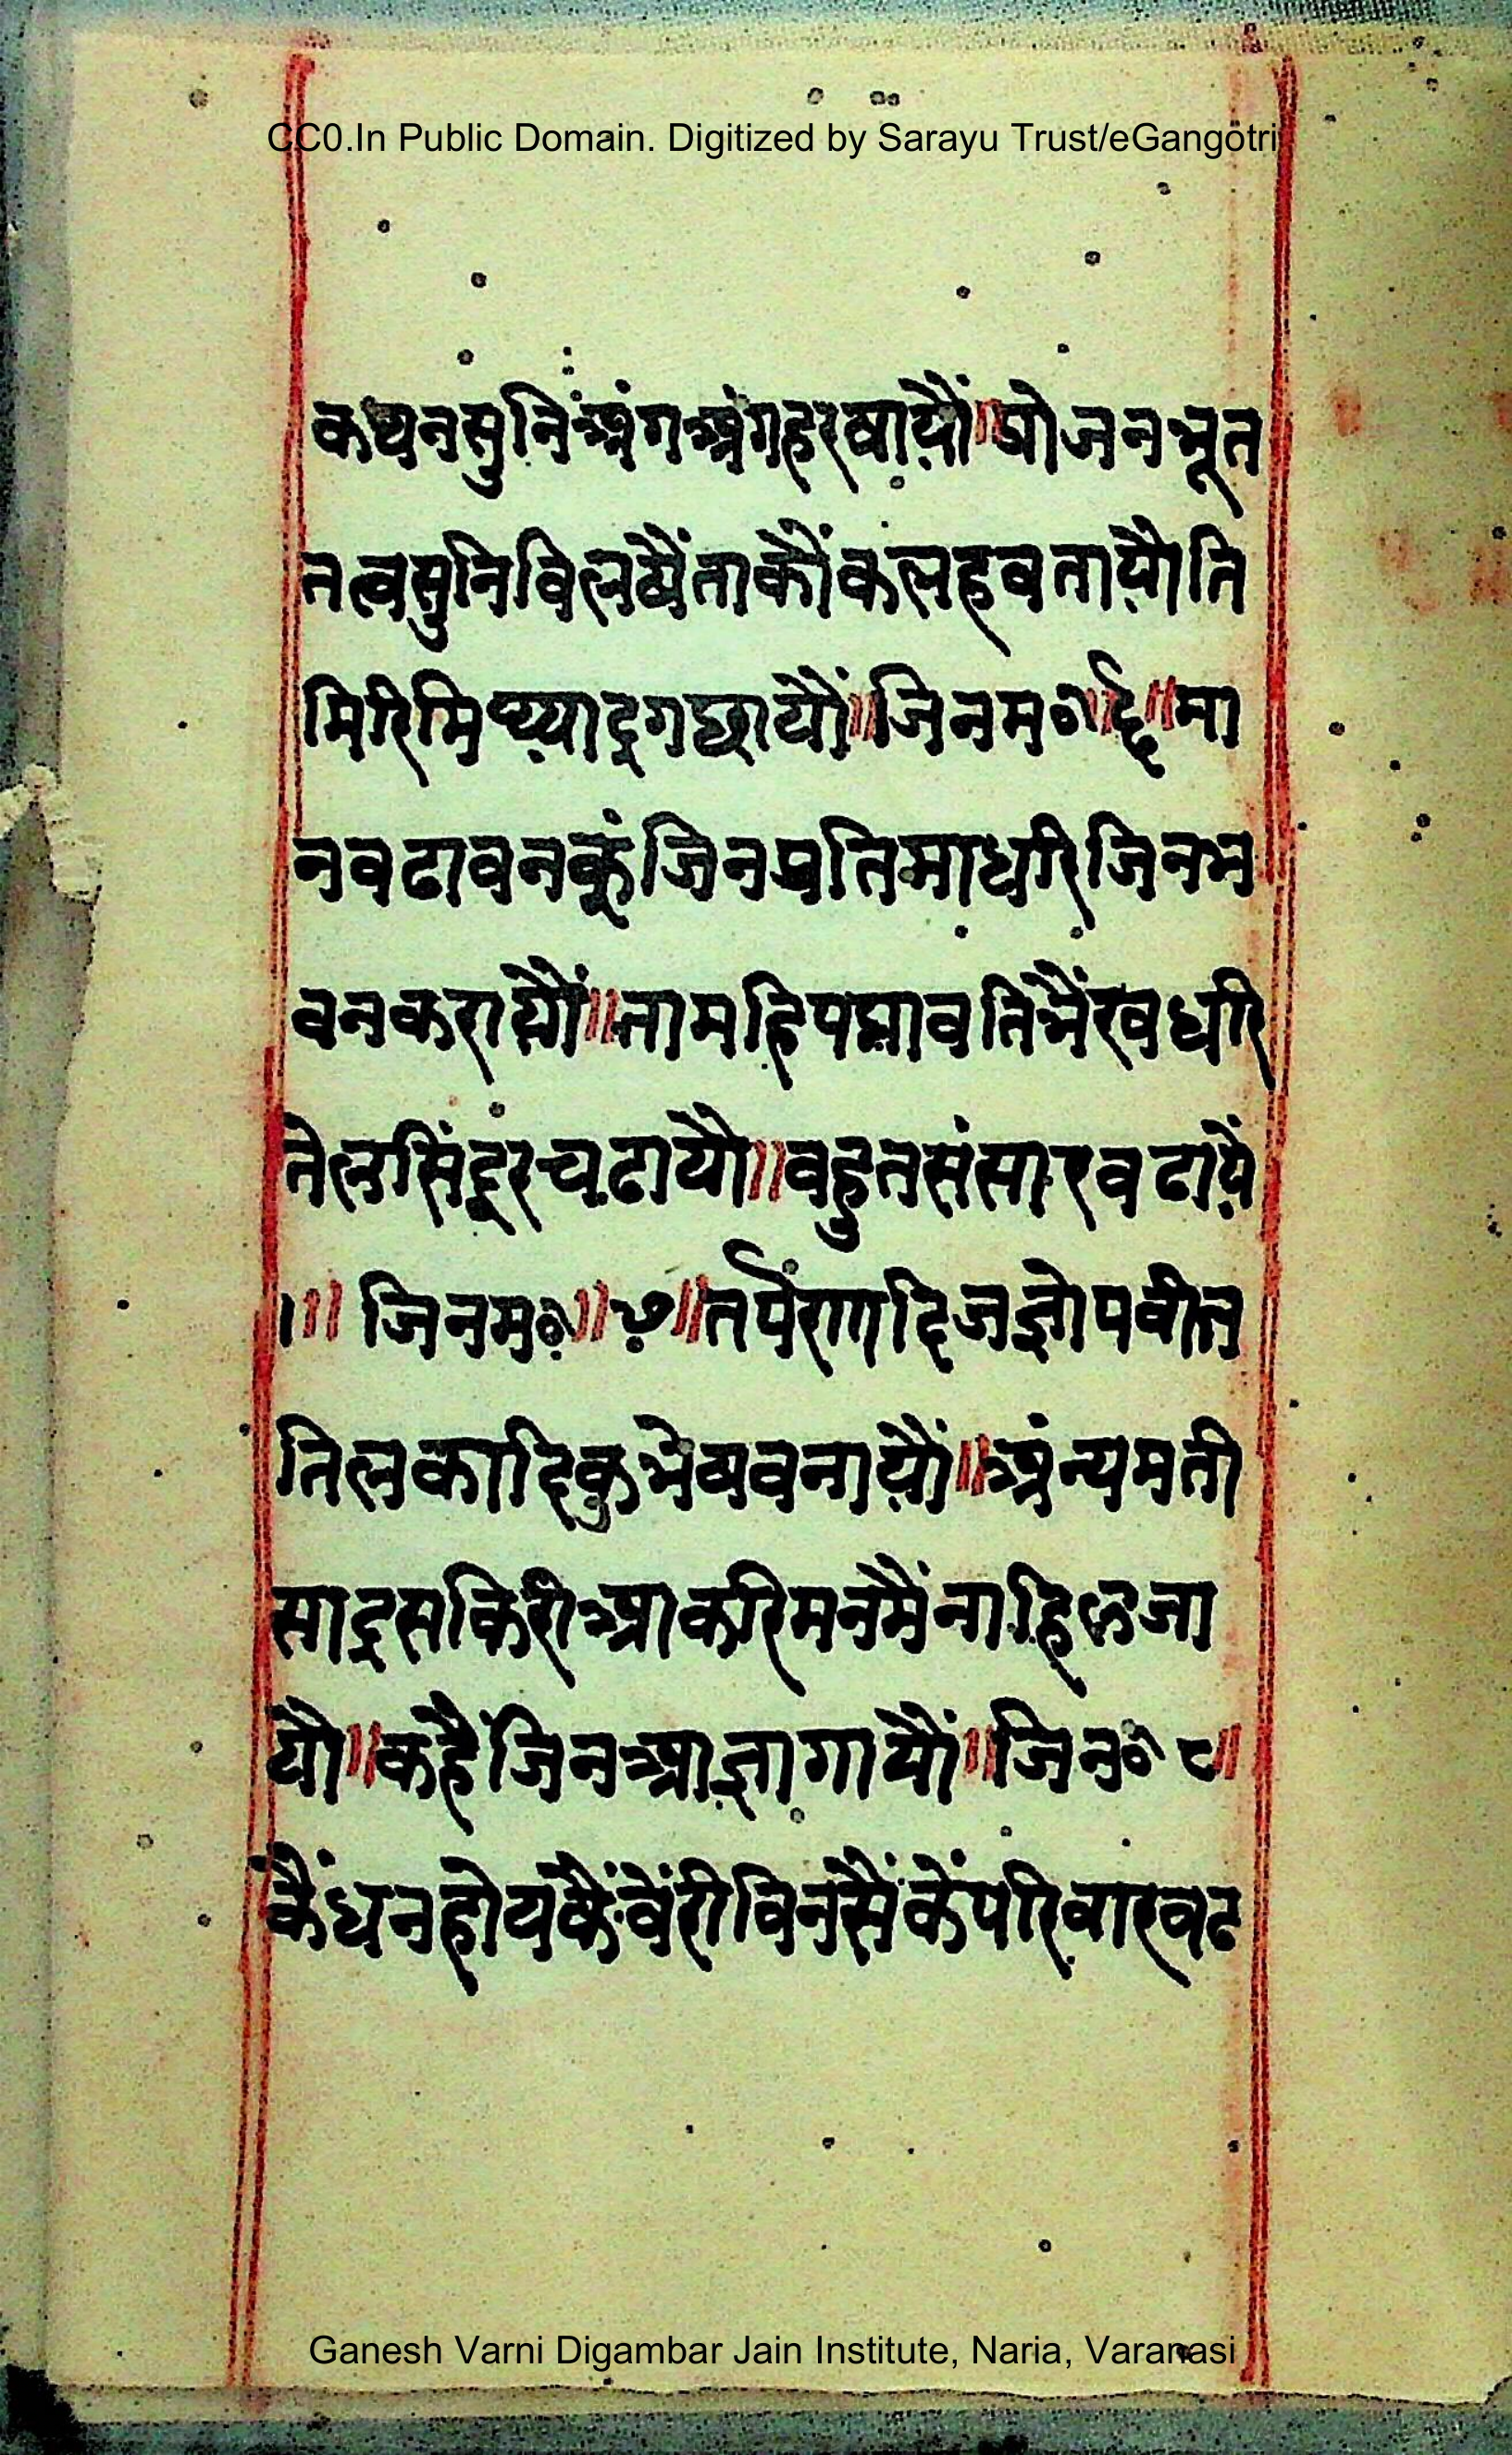 CC0.In Public Domain. Digitized by Sarayu Trust/eGangotri
कथनसुनिंअंगअंगहरषायौं॥योजनभूत
तत्वसुनिविलषैंताकौंकलहवतायौति
मिरिमिथ्याद्रगछायौं॥जिनम०॥६॥मा
नवढावनकूंजिनप्रतिमाधरिजिनभ
वनकरायौं॥नामहिपद्मावतिभैंरवधरि
तेलसिंदूरचढायौ॥वहुतसंसारवढायें
।॥जिनम०॥७॥तर्पणादिजज्ञोपवीत
तिलकादिकुभेषवनायौं॥अंन्यमती
साद्रसकिरीआकरिमनमैंनाहिलजा
यौ॥कहैंजिनआज्ञागायौं॥जिन०८॥
कैंधनहोयकैंवेंरीविनसैंकेंपरिवारवढ
Ganesh Varni Digambar Jain Institute, Naria, Varanasi